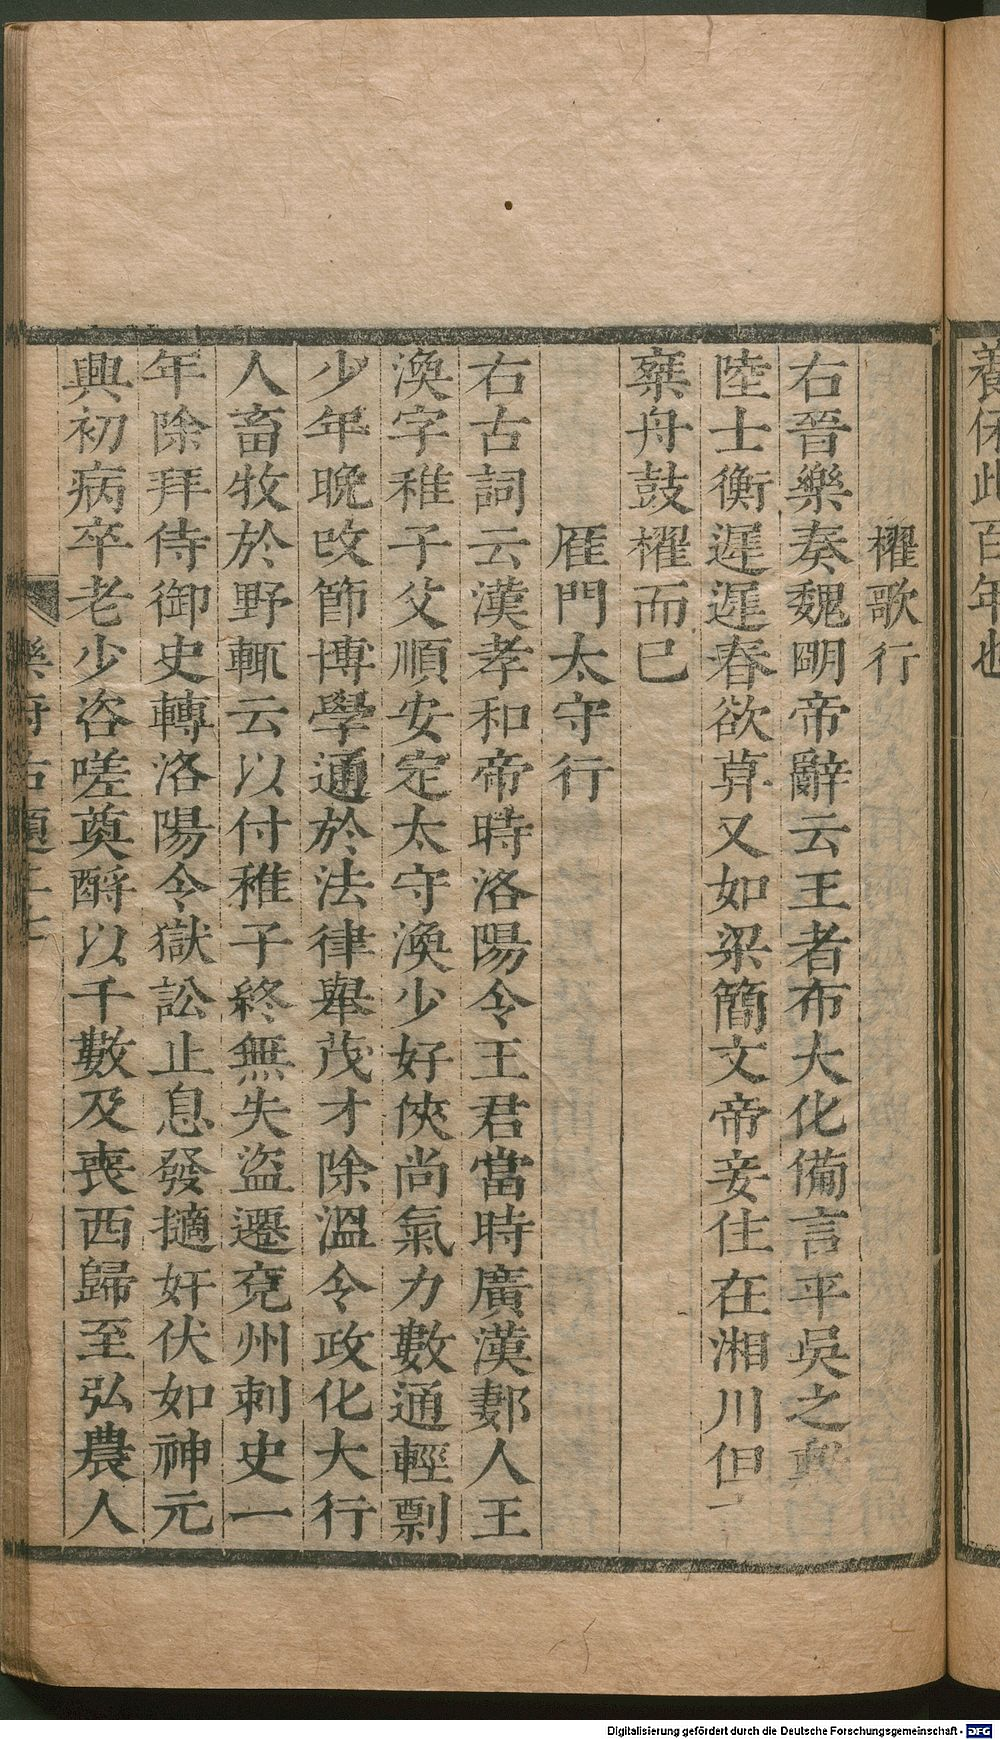 養保此百年也
櫂歌行
右晉樂奏魏明帝辭云王者布大化備言平吳之勲
陸士衡遲遲春欲暮又如梁簡文帝妾住在湘川但
棄舟鼓櫂而已
雁門太守行
右古詞云漢孝和帝時洛陽令王君當時廣漢郪人王
渙字稚子父順安定太守渙少好俠尚氣力數通輕剽
少年晚改節博學通於法律舉茂才除溫令政化大行
人畜牧於野輒云以付稚子終無失盜遷兗州刺史一
年除拜侍御史轉洛陽令獄訟止息發擿奸伏如神元
興初病卒老少咨嗟奠酹以千數及喪西歸至弘農人
樂府古題
Digitalisierung gefördert durch die Deutsche Forschungsgemeinschaft - DFG